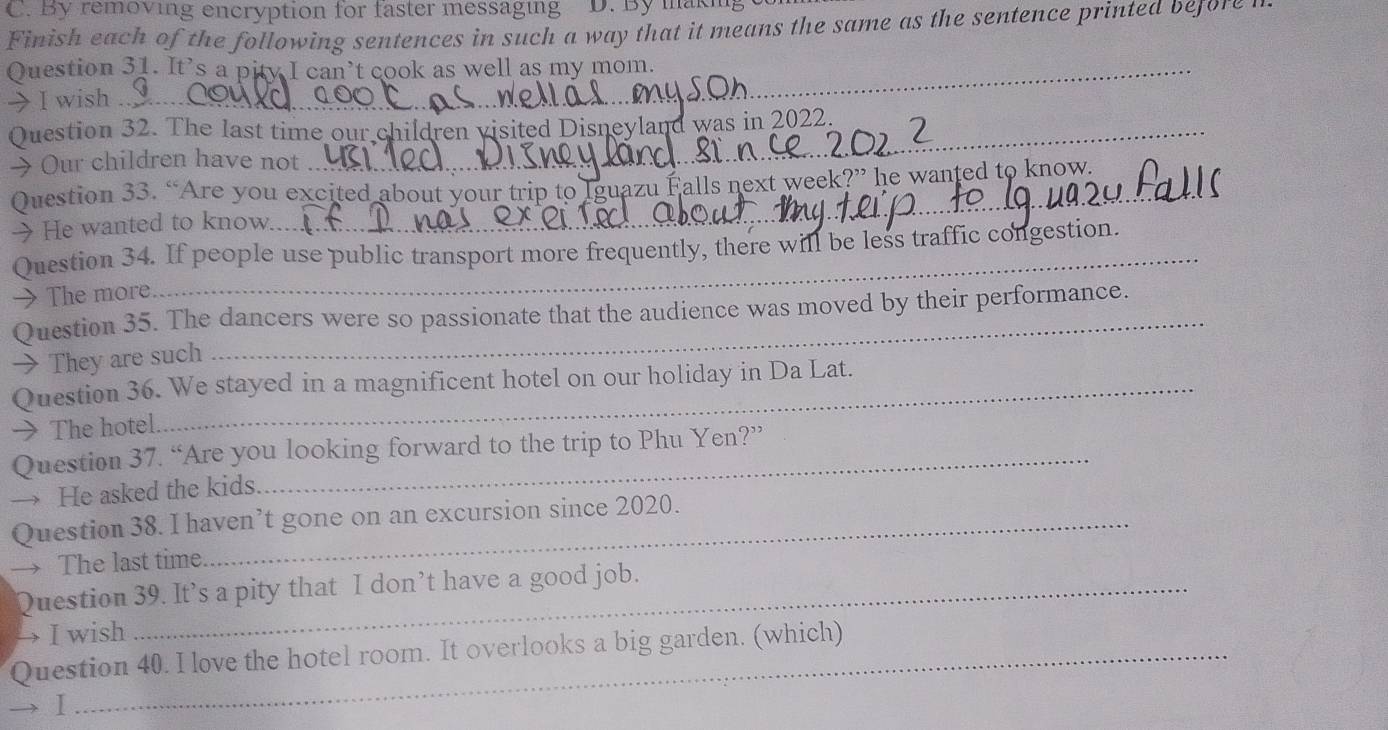 C. By removing encryption for faster messaging D. By making
Finish each of the following sentences in such a way that it means the same as the sentence printed before it.
Question 31. It's a pity I can't cook as well as my mom.
→ I wish I could cook as well as my son
Question 32. The last time our children visited Disneyland was in 2022.
→ Our children have not usited Disneyland since 2022
Question 33. “Are you excited about your trip to Iguazu Falls next week?” he wanted to know.
→ He wanted to know if I was exeited about my teip to Iguazu Falls
Question 34. If people use public transport more frequently, there will be less traffic congestion.
→ The more
Question 35. The dancers were so passionate that the audience was moved by their performance.
→ They are such
Question 36. We stayed in a magnificent hotel on our holiday in Da Lat.
→ The hotel
Question 37. “Are you looking forward to the trip to Phu Yen?”
→ He asked the kids
Question 38. I haven't gone on an excursion since 2020.
→ The last time
Question 39. It's a pity that I don't have a good job.
→ I wish
Question 40. I love the hotel room. It overlooks a big garden. (which)
→ I